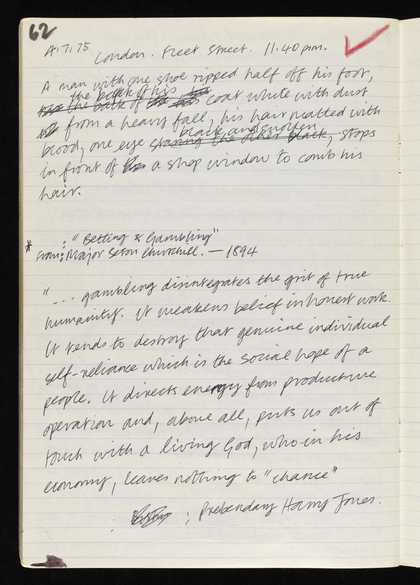 62
A.T. 75
London. Fleet Street. 11.40 p.m.
A man with one shoe ripped half off his foot,
the back of his
the back of coat white with dust
from a heavy fall, his hair matted with
black and swollen
blood, one eye staring the other black, stops
in front of a shop window to comb his
hair.
: "Betting & Gambling"
* from: Major Seton Churchill. — 1894
"... gambling disintegrates the grit of true
humanity. It weakens belief in honest work.
It tends to destroy that genuine individual
self-reliance which is the social hope of a
people. It directs energy from productive
operation and, above all, puts us out of
touch with a living God, who in his
economy, leaves nothing to "chance"
: Prebendary Harry Jones.